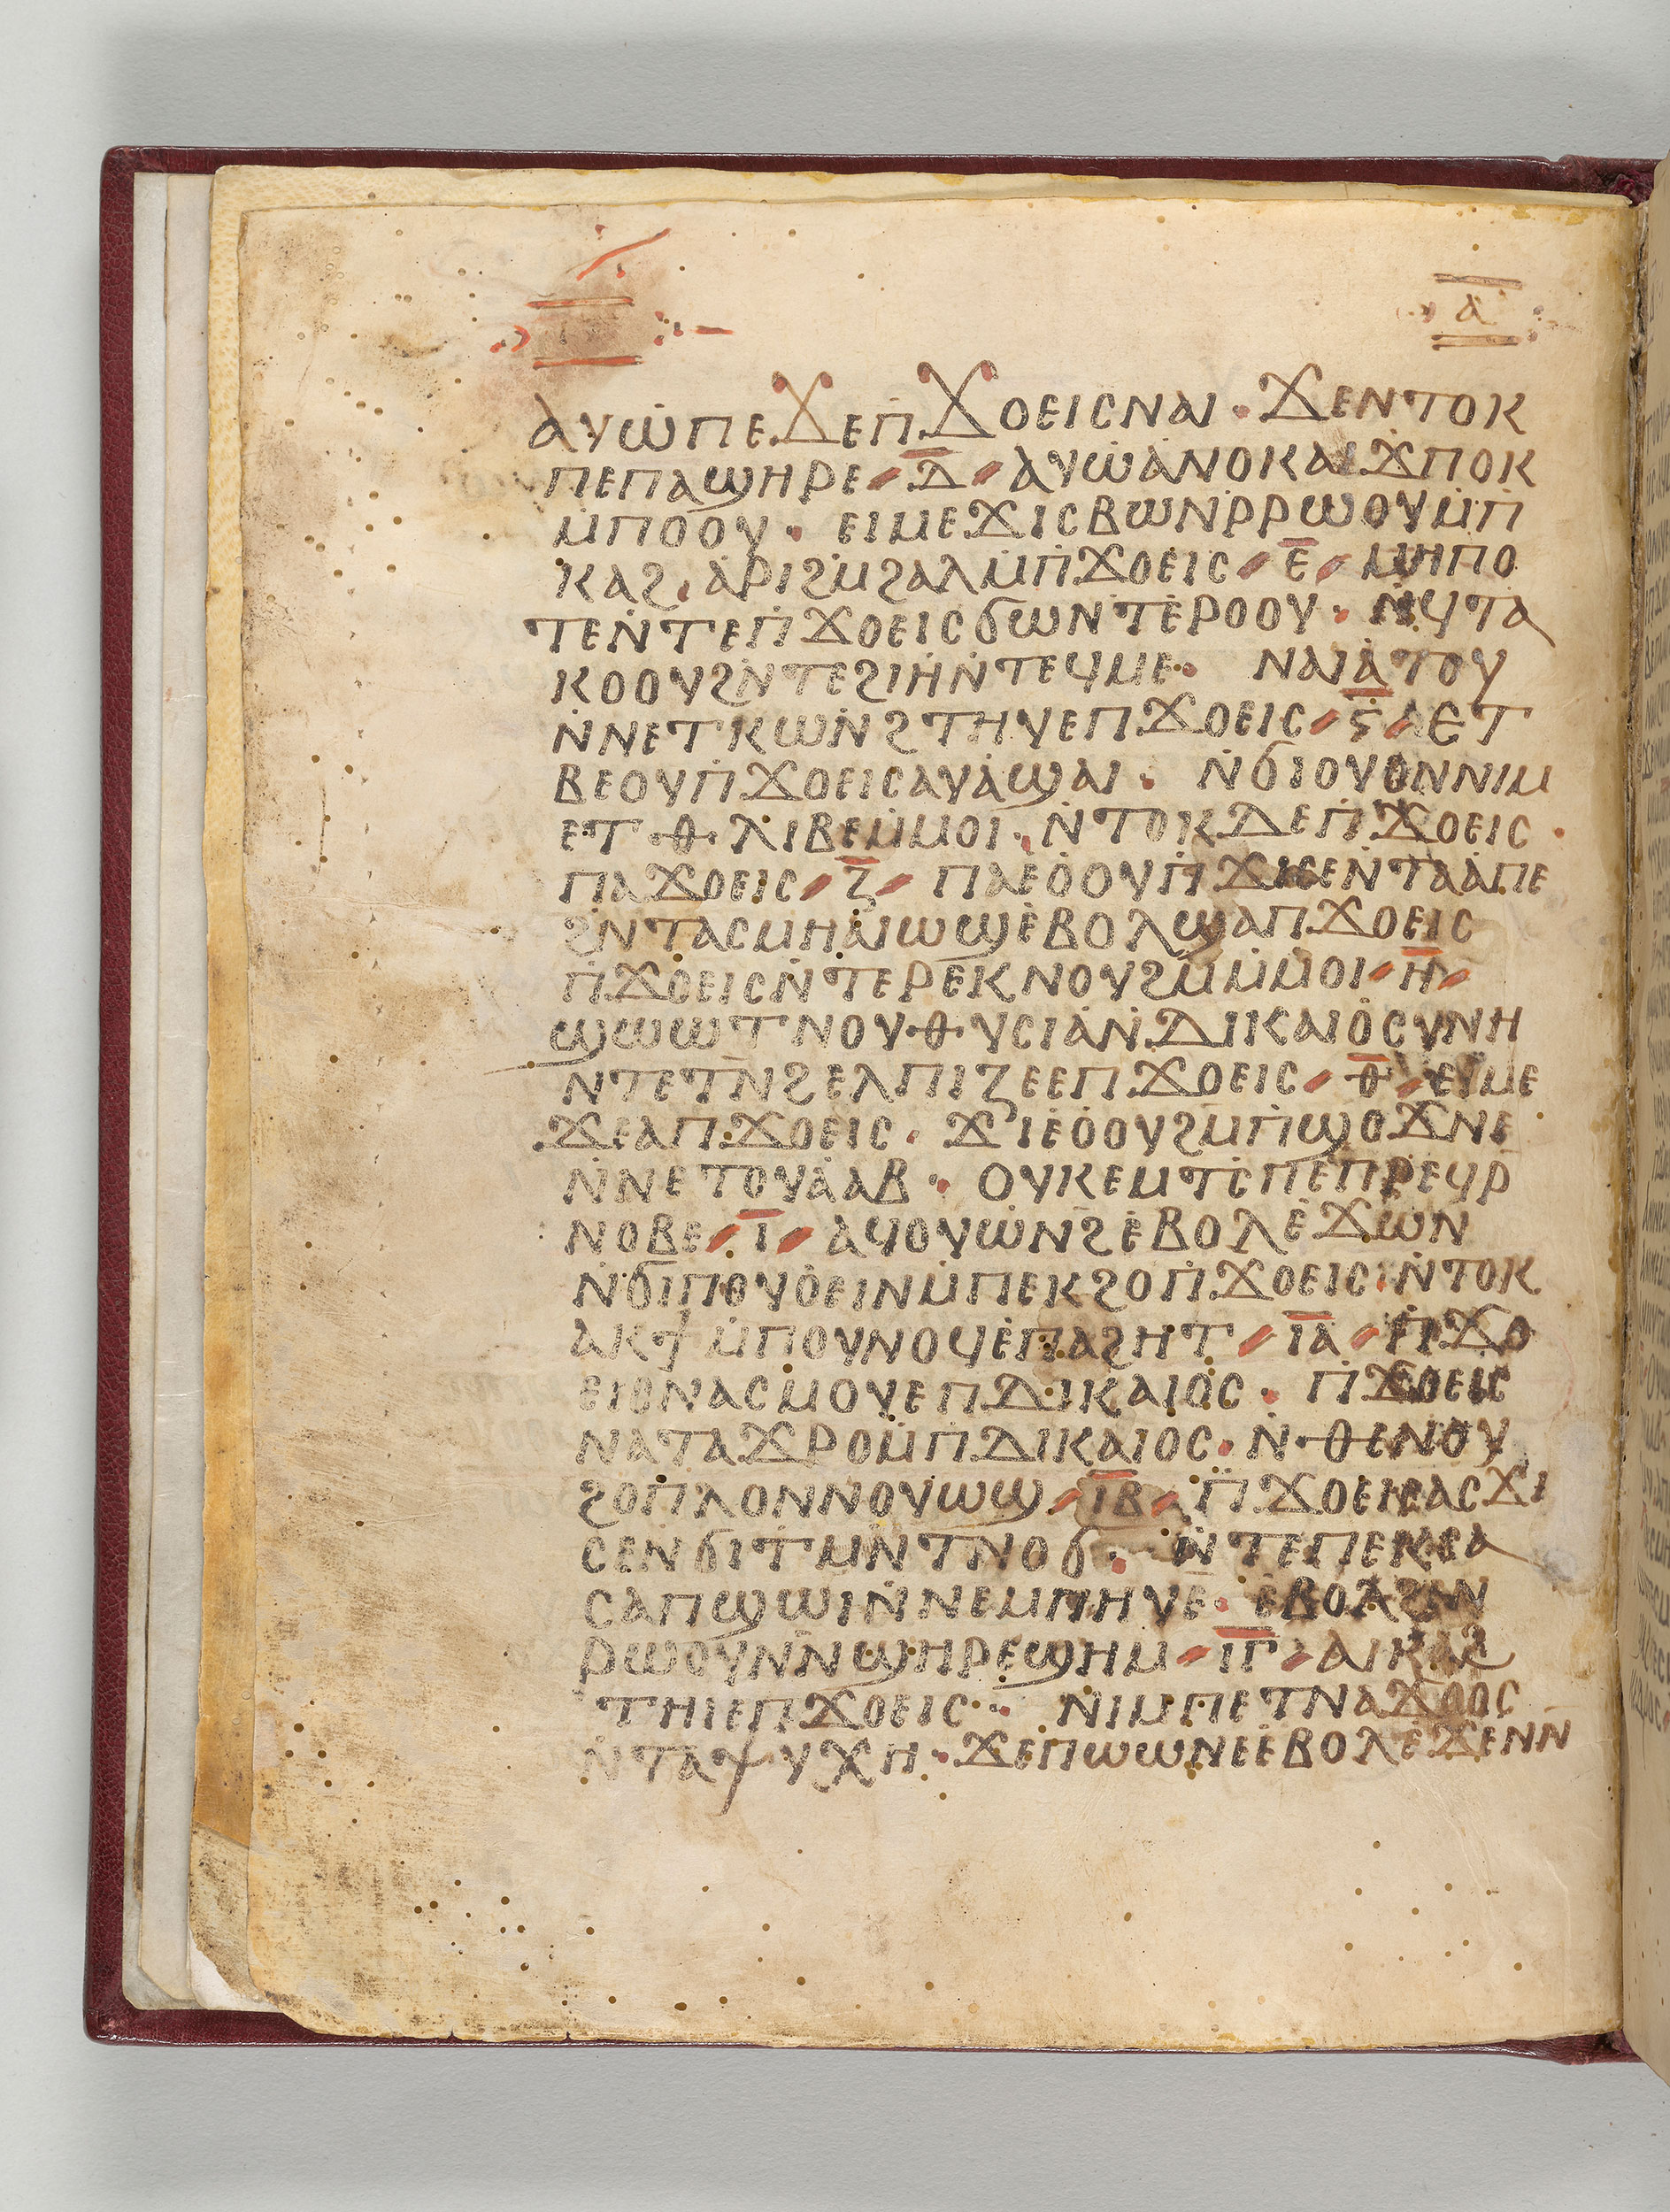 ⲁ̅
ⲁⲩⲱ̇ⲡⲉϫⲉⲡ̇ϫⲟⲉⲓⲥⲛⲁⲓ · ϫⲉⲛⲧⲟⲕ
ⲡⲉⲡⲁϣⲏⲣⲉ ⸗ ⲇ̅ ⸗ ⲁⲩⲱ̇ⲁ̇ⲛⲟⲕⲁⲓϫⲡⲟⲕ
ⲙ̇ⲡⲟⲟⲩ · ⲉⲓⲙⲉϫⲓⲥⲃⲱⲛ̇ⲣ̇ⲣⲱⲟⲩⲙ̇ⲡ̇
ⲕⲁϩ · ⲁ̇ⲣⲓϩⲙ̇ϩⲁⲗⲙ̇ⲡ̇ϫⲟⲉⲓⲥ ⸗ ⲉ̅ ⸗ ⲙⲏⲡⲟ
ⲧⲉⲛ̇ⲧⲉⲡ̇ϫⲟⲉⲓⲥϭⲱⲛ̇ⲧⲉ̇ⲣⲟⲟⲩ · ⲛ̇ϥⲧⲁ
ⲕⲟⲟⲩϩⲛ̇ⲧⲉϩⲓⲏ̇ⲛ̇ⲧⲉϥⲙⲉ · ⲛⲁⲓⲁ̇ⲧⲟⲩ
ⲛ̇ⲛⲉⲧⲕⲱⲛ̇ϩⲧⲏⲩⲉⲡϫⲟⲉⲓⲥ ⸗ ⲋ̅ ⸗ ⲉⲧ
ⲃⲉⲟⲩⲡ̇ϫⲟⲉⲓⲥⲁⲩⲁ̇ϣⲁⲓ · ⲛ̇ϭⲓⲟⲩⲟⲛⲛⲓⲙ
ⲉⲧⲑⲗⲓⲃⲉⲙ̇ⲙⲟⲓ · ⲛ̇ⲧⲟⲕⲇⲉⲡ̇ϫⲟⲉⲓⲥ ·
ⲡⲁϫⲟⲉⲓⲥ ⸗ ⲍ̅ ⸗ ⲡⲁⲉ̇ⲟ̇ⲟⲩⲡ̇ϫⲓⲥⲉⲛ̇ⲧⲁⲁ̇ⲡⲉ
ϩⲛ̇ⲧⲁⲥⲙⲏⲁ̇ⲓⲱϣⲉ̇ⲃⲟⲗϣⲁⲡϫⲟⲉⲓⲥ
ⲡ̇ϫⲟⲉⲓⲥⲛ̇ⲧⲉⲣⲉⲕⲛⲟⲩϩⲙ̇ⲙ̇ⲙⲟⲓ ⸗ ⲏ̅ ⸗
ϣⲱⲱⲧⲛⲟⲩⲑⲩⲥⲓⲁ̇ⲛ̇ⲇⲓⲕⲁⲓⲟ̇ⲥⲩⲛⲏ
ⲛⲧⲉⲧⲛ̅ϩⲉⲗⲡⲓⲍⲉⲉⲡϫⲟⲉⲓⲥ ⸗ ⲑ̅ ⸗ ⲉⲓⲙⲉ
ϫⲉⲁⲡϫⲟⲉⲓⲥ · ϫⲓⲉ̇ⲟ̇ⲟⲩϩⲙ̇ⲡ̇ϣⲟϫⲛⲉ
ⲛ̇ⲛⲉⲧⲟⲩⲁ̇ⲁⲃ · ⲟⲩⲕⲉⲙⲧⲥ̇ⲡⲉⲡⲣⲉϥⲣ
ⲛⲟⲃⲉ ⸗ ⲓ̅ ⸗ ⲁϥⲟⲩⲱ̇ⲛϩⲉ̇ⲃⲟⲗⲉ̇ϫⲱⲛ
ⲛ̇ϭⲓⲡⲟⲩⲟ̇ⲉⲓⲛⲙ̇ⲡⲉⲕϩⲟⲡ̇ϫⲟⲉⲓⲥ · ⲛ̇ⲧⲟⲕ
ⲁⲕϯⲙ̇ⲡⲟⲩⲛⲟϥⲉ̇ⲡⲁϩⲏⲧ ⸗ ⲓⲁ̅ ⸗ ⲡ̇ϫⲟ
ⲉⲓⲥⲛⲁⲥⲙⲟⲩⲉⲡⲇⲓⲕⲁⲓⲟⲥ · ⲡ̇ϫⲟⲉⲓⲥ
ⲛⲁⲧⲁϫⲣⲟⲙ̇ⲡ̇ⲇⲓⲕⲁⲓⲟⲥ · ⲛ̇ⲑⲉⲛⲟⲩ
ϩⲟⲡⲗⲟⲛⲛⲟⲩⲱϣ ⸗ ⲓⲃ̅ ⸗ ⲡ̇ϫⲟⲉⲓⲥⲁⲥϫⲓ
ⲥⲉⲛϭⲓⲧⲙⲛ̇ⲧⲛⲟϭ · ⲛ̇ⲧⲉⲡⲉⲕⲥⲁ
ⲥⲁⲡϣⲱⲓⲛ̇ⲛⲉⲙⲡⲏⲩⲉ · ⲉ̇ⲃⲟⲗϩⲛ
ⲣⲱⲟⲩⲛ̅ⲛ̅ϣⲏⲣⲉϣⲏⲙ ⸗ ⲓⲅ̅ ⸗ ⲁⲓⲕⲁϩ
ⲧⲏⲓⲉⲡϫⲟⲉⲓⲥ · ⲛⲓⲙⲡⲉⲧⲛⲁϫⲟⲟⲥ
ⲛ̇ⲧⲁⲯⲩⲭⲏ · ϫⲉⲡⲱⲱⲛⲉⲉ̇ⲃⲟⲗⲉ̇ϫⲉⲛⲛ̇